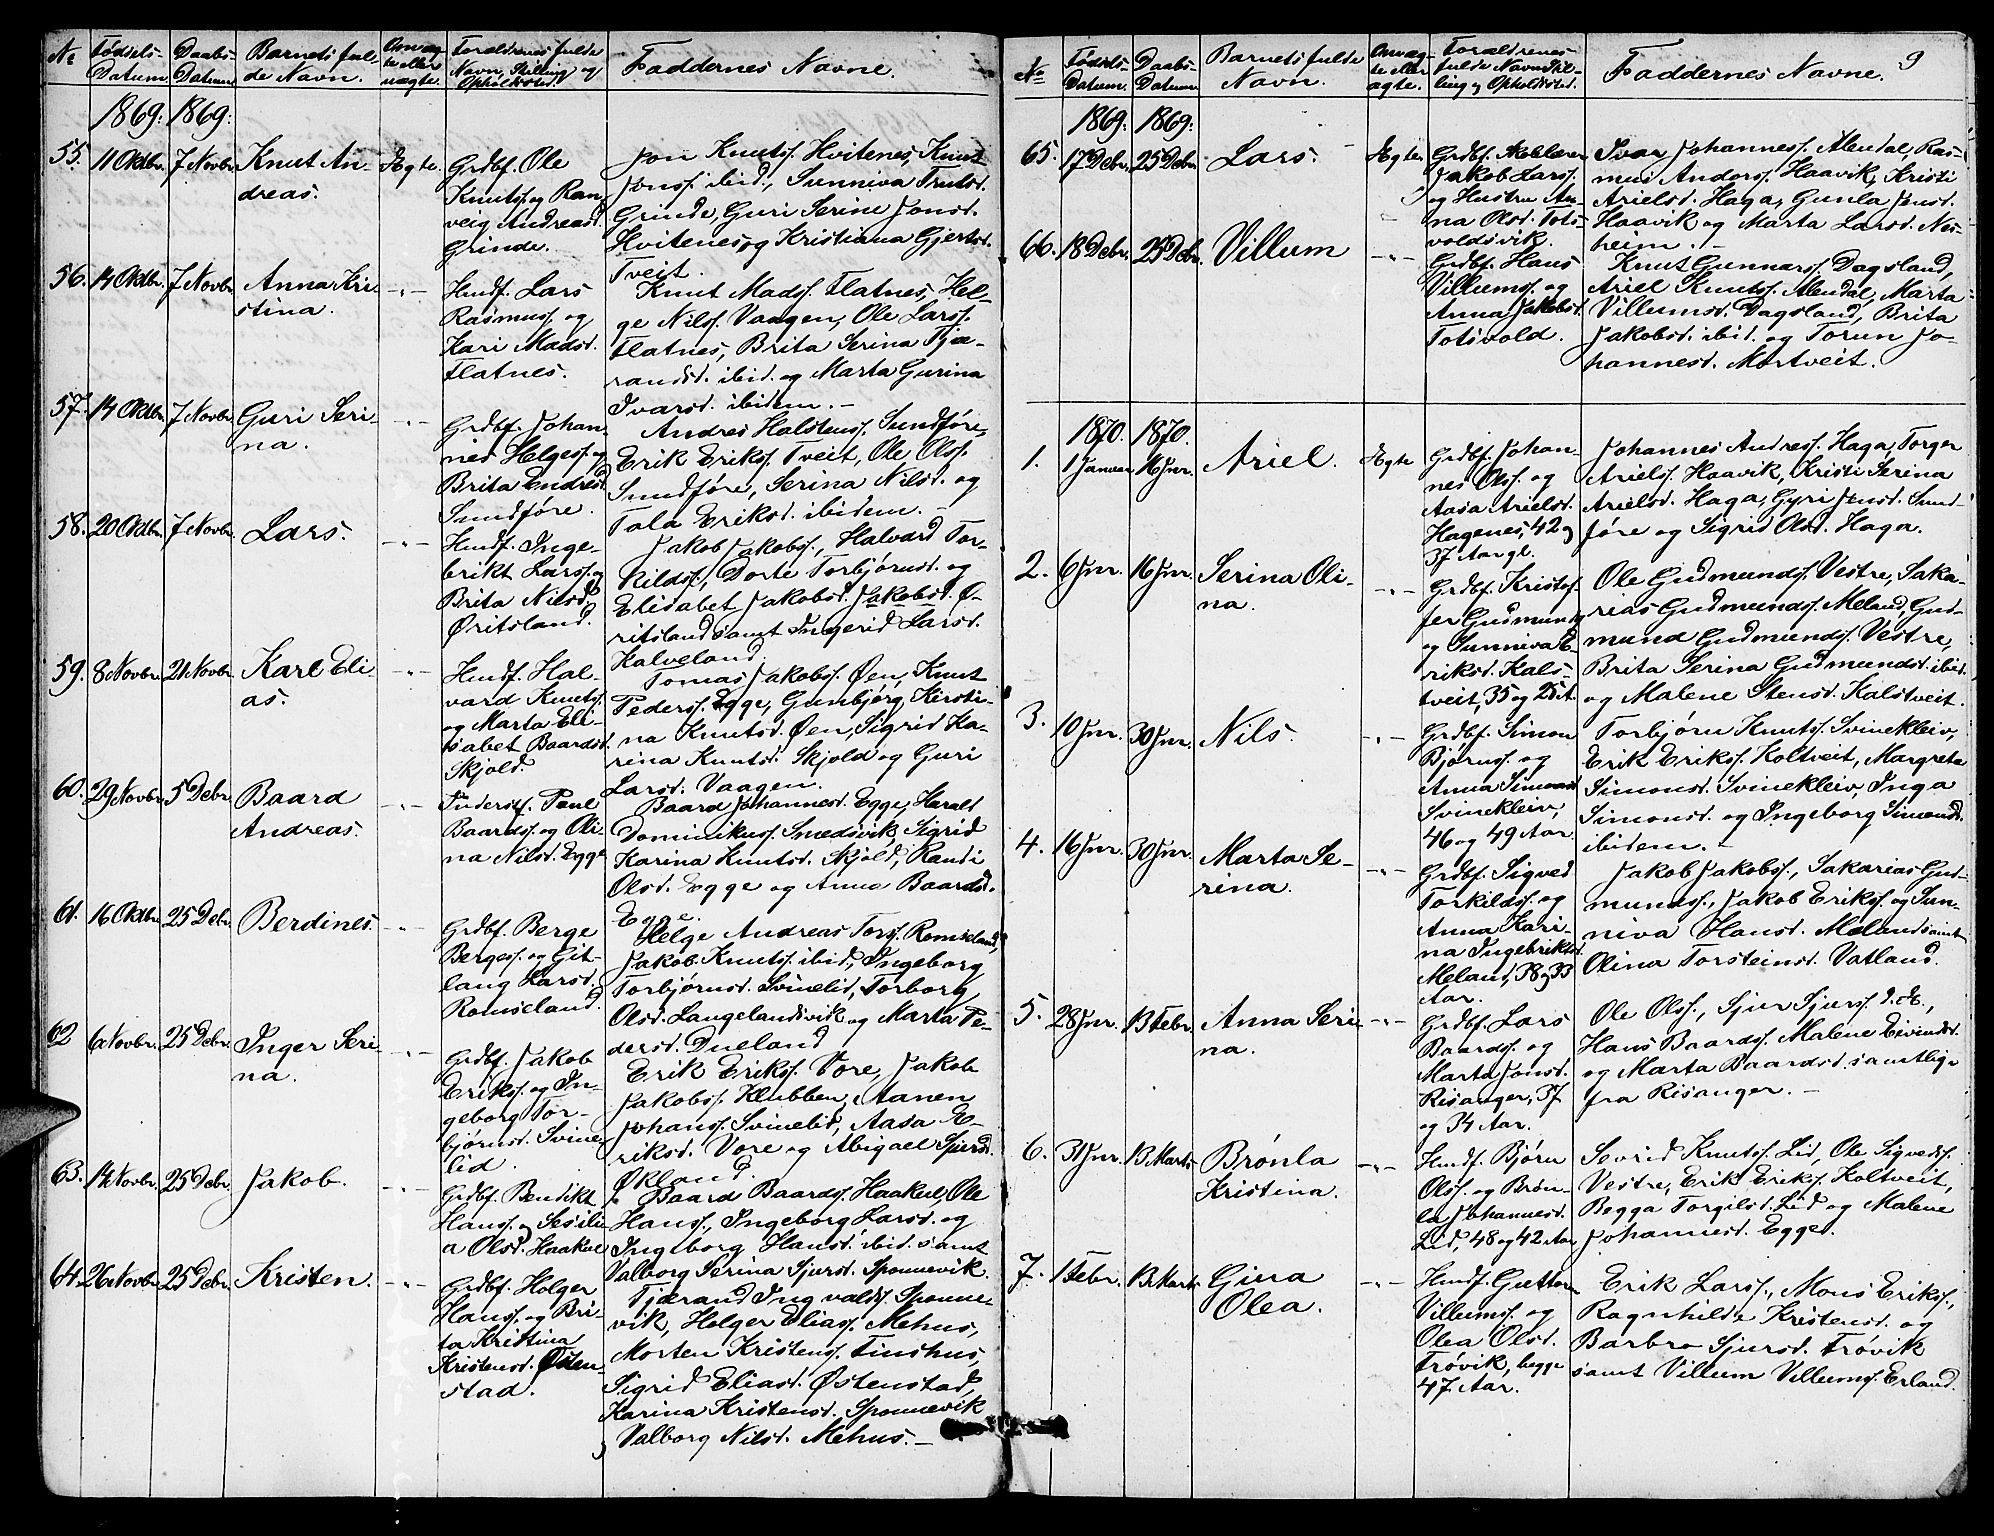 No Fødsels-Datum. Daabs-Datum Barnets fulde Navn. Om ægte eller uægte. Forældrenes fulde Navn, Stilling og Opholdssted. Faddernes Navne.
1869: 1869:
55. 11 Oktbr. 7 Novbr. Knut Andreas. Ægte.
Grdbf. Ole
Knuts. og Ran-
veig Andreasd.
Grinde.
Jon Knuts. Hvitenes, Knut
Jons. ibid., Sunniva Trulsd.
Grinde, Guri Serine Jonsd.
Hvitenes og Kristiana Gjertsd.
Tveit.
56. 14 Oktbr. 7 Novbr. Anna Kristina. -"-
Husf. Lars
Rasmus. og
Kari Madsd.
Flatnes.
Knut Mads. Flatnes, Hel-
ge Nils. Vaagen, Ole Lars.
Flatnes, Brita Serina Tjæ-
randsd. ibid. og Marta Gurina
Ivarsd. ibidem. -
57. 14 Oktbr. 7 Novbr. Guri Serina. -"-
Grdbf. Johan-
nes Helges. og
Brita Endresd.
Sundføre.
Andres Halstens. Sundføre,
Erik Eriks. Tveit, Ole Ols.
Sundføre, Serina Nilsd. og
Tala Eriksd. ibidem. -
58. 20 Oktbr. 7 Novbr. Lars. -"-
Husf. Inge-
brikt Lars. og
Brita Nilsd.
Øritsland.
Jakob Jakobs., Halvard Tor-
kilds., Dorte Torbjørnsd. og
Elisabet Jakobsd. Jakobsd. Ø-
ritsland samt Ingerid Larsd.
Kalveland.
59. 8 Novbr. 21 Novbr. Karl Elias. -"-
Husf. Hal-
vard Knuts.
og Marta Eli-
sabet Baardsd.
Skjold.
Tomas Jakobs. Øen, Knut
Peders. Egge, Gunbjørg Kirsti-
na Knutsd. Øen, Sigrid Ka-
rina Knutsd. Skjold og Guri
Larsd. Vaagen.
60. 29 Novbr. 5 Debr. Baard Andreas. -"-
Inderstf. Paul
Baards. og Oli-
na Nilsd. Egge
Baard Johannesd. Egge, Harald
Dominikus. Smedsvik, Sigrid
Karina Knutsd. Skjold, Randi
Olsd. Egge og Anna Baardsd.
Egge.
61. 16 Oktbr. 25 Debr. Berdines. -"-
Grdbf. Berge
Berges. og Git-
laug Larsd.
Romseland.
Helge Andreas Tors. Romseland,
Jakob Knuts. ibid., Ingeborg
Torbjørnsd. Svinelid, Torborg
Olsd. Langelandsvik og Marta Pe-
dersd. Dueland
62 6 Novbr. 25 Debr. Inger Serina. -"-
Grdbf. Jakob
Eriks. og In-
geborg Tor-
bjørnsd. Svine-
lid.
Erik Eriks. Vore, Jakob
Jakobs. Klubben, Aanen
Johans. Svinelid, Aasa E-
riksd. Vore og Abigael Sjursd.
Økland.
63. 14 Novbr. 25 Debr. Jakob. -"-
Grdbf. Bendikt
Hans. og Sesili-
a Olsd. Haakul
Baard Baards. Haakul, Ole
Hans., Ingeborg Larsd. og
Ingeborg Hansd. ibid. samt
Valborg Serina Sjursd. Sponnevik.
64. 26 Novbr. 25 Debr. Kristen. -"-
Grdbf. Holger
Hans. og Bri-
ta Kristina
Kristensd. Østen-
stad.
Tjærand Ingvalds. Sponne-
vik, Holger Elias. Mehus,
Morten Kristens. Tinshus,
Sigrid Eliasd. Østenstad,
Karina Kristensd. Sponnevik
Valborg Nilsd. Mehus. -
9
No Fødsels-Datum. Daabs-Datum Barnets fulde Navn. Om ægte eller uægte. Forældrenes fulde Navn, Stilling og Opholdssted. Faddernes Navne.
1869: 1869:
65. 17 Debr. 25 Debr. Lars. Ægte.
Grdbf. Skolelærer
Jakob Lars.
og Hustru An-
na Olsd. Tots-
voldsvik.
Ivar Johannes. Alendal, Ras-
mus Anders. Haavik, Kristi
Arielsd. Haga, Gunla Jensd.
Haavik og Marta Larsd. Nes-
heim. -
66. 18 Debr. 25 Debr. Villum -"-
Grdbf. Hans
Villums. og
Anna Jakobsd.
Totsvold.
Knut Gunnars. Dagsland,
Ariel Knuts. Alendal, Marta
Villumsd. Dagsland, Brita
Jakobsd. ibid. og Torun Jo-
hannesd. Mortveit.
1870. 1870.
1. 1 Januar 16 Jnr. Ariel. Ægte
Grdbf. Johan-
nes Ols. og
Aasa Arielsd.
Hagenes, 42 og
37 Aar gl.
Johannes Andres. Haga, Torger
Ariels. Haavik, Kristi Serina
Arielsd. Haga, Gyri Jensd. Sund-
føre og Sigrid Olsd. Haga.
2. 6 Jnr. 16 Jnr. Serina Olina. -"-
Grdbf. Kristof-
fer Gudmunds.
og Sunniva E-
riksd. Kals-
tveit, 35 og 25 A.
Ole Gudmunds. Vestre, Saka-
rias Gudmunds. Meland, Gud-
mund Gudmunds. Vestre,
Brita Serina Gudmundsd. ibid.
og Malene Stensd. Kalstveit.
3. 10 Jnr. 30 Jnr. Nils. -"-
Grdbf. Simon
Bjørns. og
Anna Simonsd.
Svinekleiv,
46 og 49 Aar.
Torbjørn Knuts. Svinekleiv,
Erik Eriks. Holtveit, Margreta
Simonsd. Svinekleiv, Inga
Simonsd. og Ingeborg Simonsd.
ibidem. -
4. 16 Jnr. 30 Jnr. Marta Serina. -"-
Grdbf. Sigved
Torkilds. og
Anna Kari-
na Ingebriktsd.
Meland, 38 og 33
Aar.
Jakob Jakobs., Sakarias Gud-
munds., Jakob Eriks. og Sun-
niva Hansd. Meland samt
Olina Torsteinsd. Vatland.
5. 28 Jnr. 13 Febr. Anna Serina. -"-
Grdbf. Lars
Baards. og
Marta Jonsd.
Risanger, 37
og 34 Aar.
Ole Ols., Sjur Sjurs. d. Æ.,
Hans Baards. Malene Eivindsd.
og Marta Baardsd. samtlige
fra Risanger. -
6. 31 Jnr. 13 Marts Brønla Kristina. -"-
Husf. Bjørn
Ols. og Brøn-
la Johannesd.
Lid, 48 og 42 Aar
Sevrid Knuts. Lid, Ole Sigveds.
Vestre, Erik Eriks. Holtveit,
Begga Torgilsd. Lid og Malene
Johannesd. Egge.
7. 1 Febr. 13 Marts Gina Olea. -"-
Husf. Gutterm
Villums. og
Olea Olsd.
Trøvik, begge
47 Aar.
Erik Lars., Mons Eriks.,
Ragnhilde Kristensd. og
Barbro Sjursd. Trøvik
samt Villum Villums. Erland.